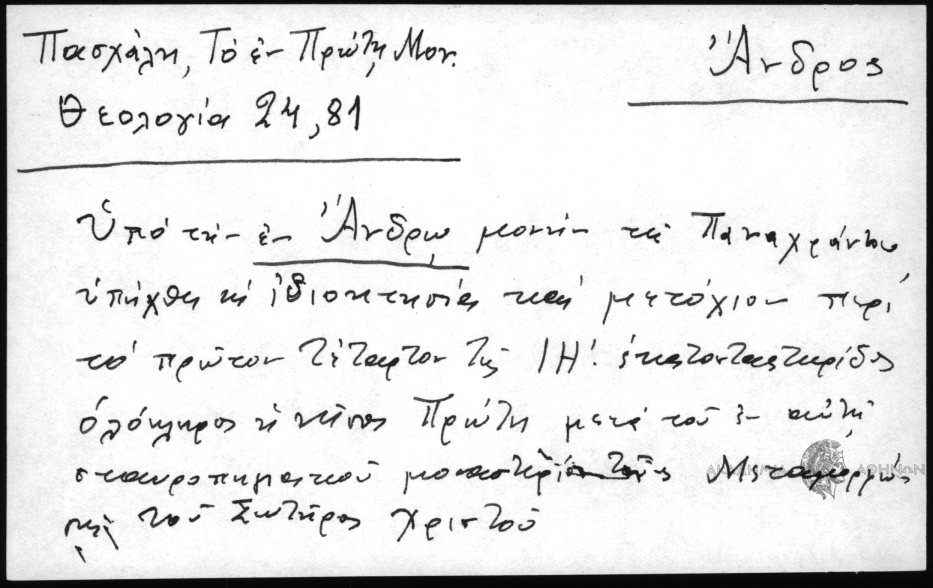 Πασχάλη, Τὸ ἐν Πρώτῃ Μον.
Ἄνδρος
Θεολογία 24, 81
Ὑπὸ τὴν ἐν Ἄνδρῳ μονὴν τῆς Παναχράντου
ὑπήχθη ὡς ἰδιοκτησία καὶ μετόχιον περὶ
τὸ πρῶτον τέταρτον τῆς ΙΗ΄. ἑκατονταετηρίδος
ὁλόκληρος ἡ νῆσος Πρώτη μετὰ τοῦ ἐν αὐτῇ
σταυροπηγιακοῦ μοναστηρίου τῆς Μεταμορφώσ
τοῦ Σωτῆρος Χριστοῦ
ΑΘΗΝΩΝ